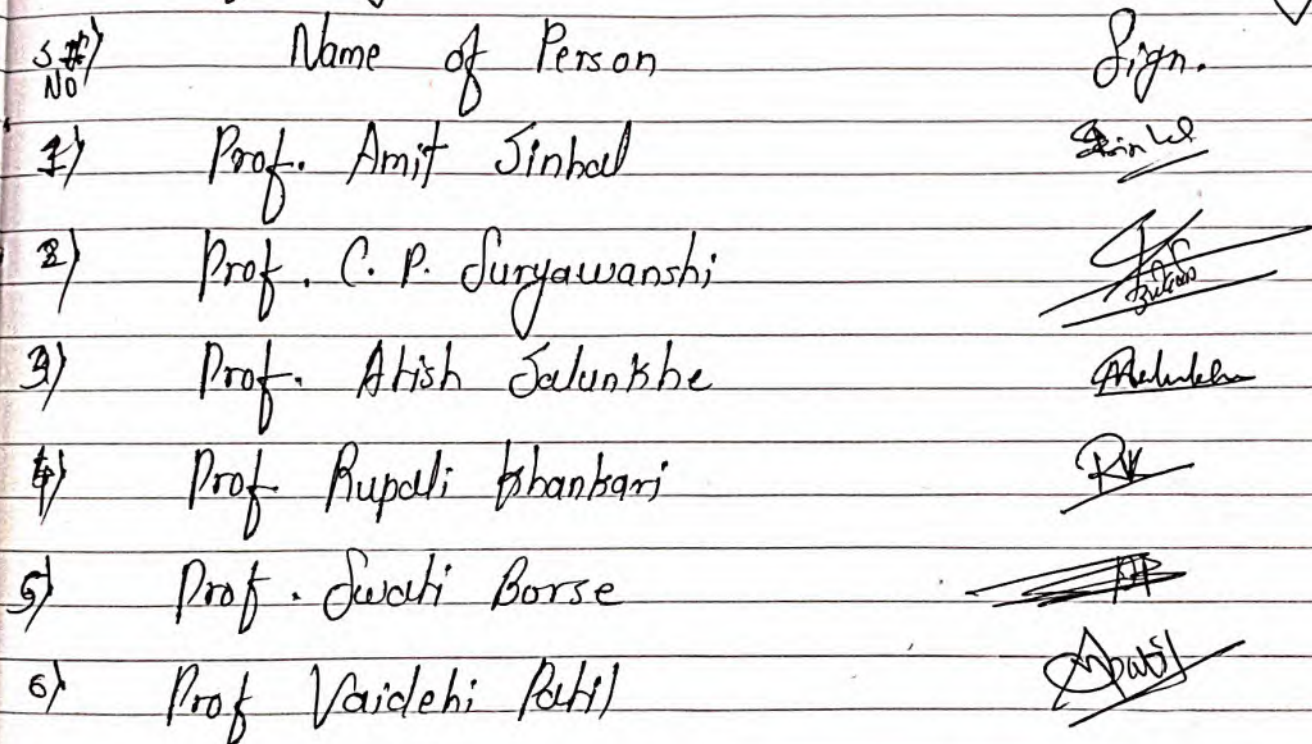 S. NO Name of Person Sign.
1) Prof. Amit Sinhal
2) Prof. C. P. Suryawanshi
3) Prof. Atish Salunkhe
4) Prof Rupali Khankari RK
5) Prof. Swati Borse
6) Prof Vaidehi Patil VPatil